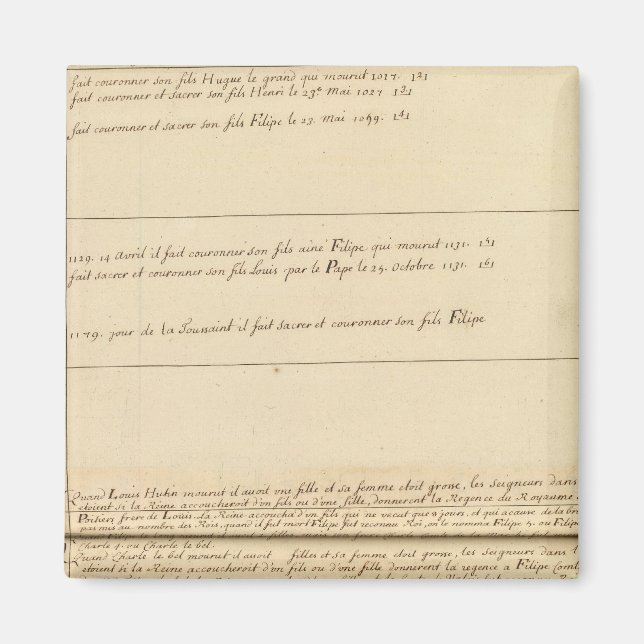 fait couronner son fils Hugue le grand qui mourut 1017. |2|
fait couronner et sacrer son fils Henri le 23e Mai 1027 |3|
fait couronner et sacrer son fils Filipe le 23. Mai 1059. |4|
1129. 14 Avril il fait couronner son fils ainé Filipe qui mourut 1131. |5|
fait sacrer et couronner son fils Louis par le Pape le 25. Octobre 1131. |6|
1179. jour de la Toussaint il fait sacrer et couronner son fils Filipe
Quand Louis Hutin mourut il avoit une fille et sa femme etoit grosse, les seigneurs dans
etoient si la Reine accoucheroit d'un fils ou d'une fille, donnerent la Regence du Royaume
Poitiers frere de Louis. La Reine accoucha d'un fils qui ne vecut que 8 jours, et qui a cause de la bri
pas mis au nombre des Rois, quand il fut mort Filipe fut reconnu Roi, on le nomma Filipe 5. ou Filipe
Charle 4. ou Charle le bel.
Quand Charle le bel mourut il avoit filles et sa femme etoit grosse, les seigneurs dans l
etoient si la Reine accoucheroit d'un fils ou d'une fille donnerent la regence a Filipe Comt